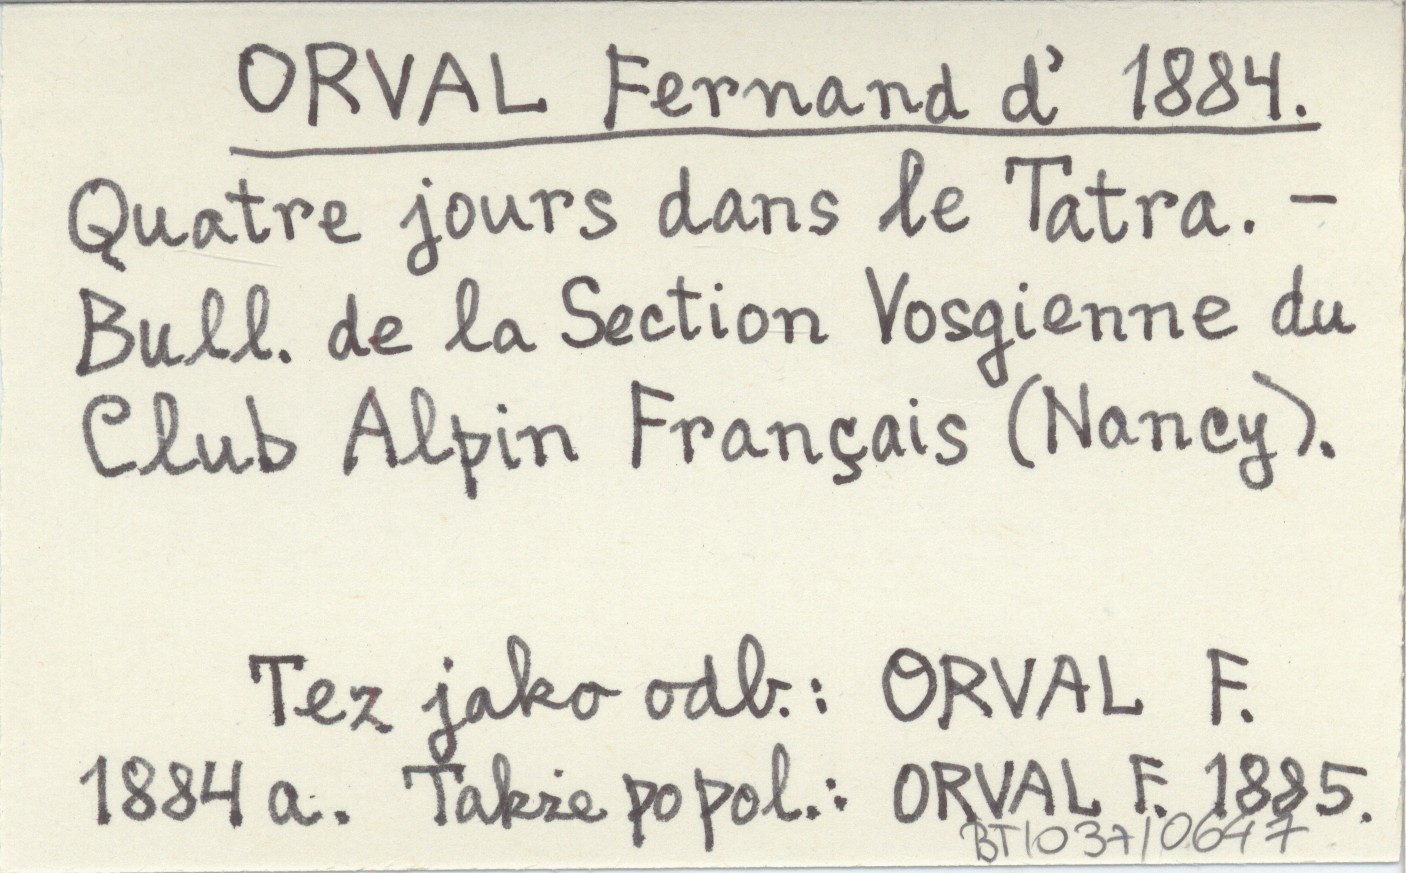 ORVAL Fernand d' 1884.
Quatre jours dans le Tatra. –
Bull. de la Section Vosgienne du
Club Alpin Français (Nancy).
Tez jako odb.: ORVAL F.
1884 a. Także po pol.: ORVAL F. 1885.
BT/037/0647